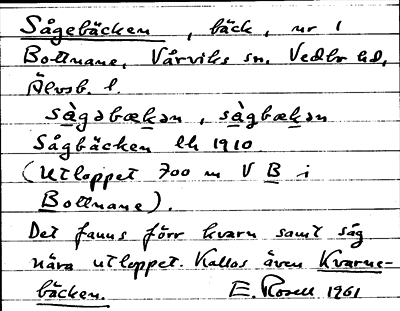 Sågebäcken, bäck, nr 1
Bottnane, Vårviks sn. Vedbo hd,
Älvsb. l.
sàgəbækən, sàgbækən
Sågbäcken ek 1910
(Utloppet 700 m V B i
Bottnane).
Det fanns förr kvarn samt såg
nära utloppet. Kallas även Kvarne-
bäcken. E. Rosell 1961